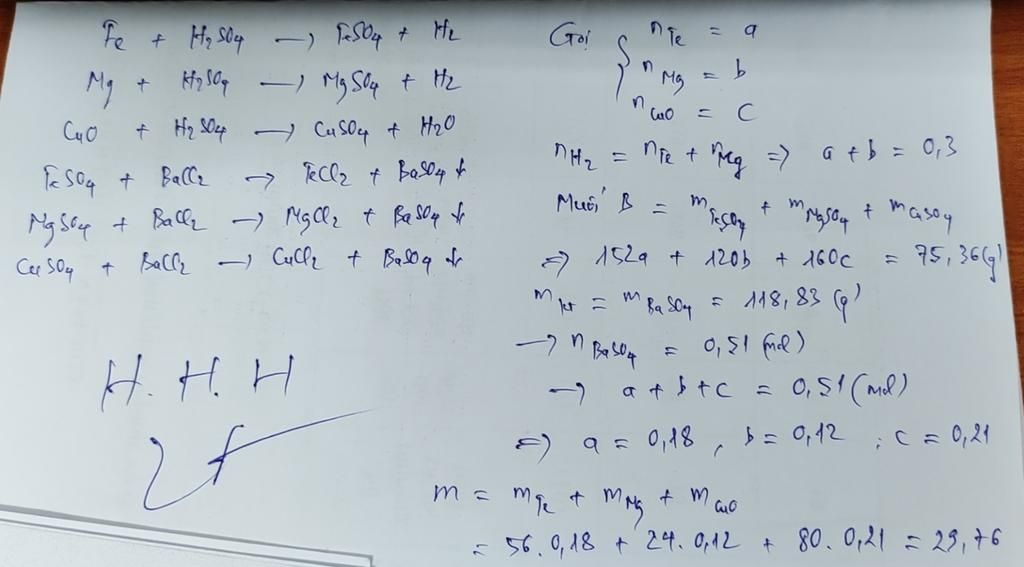 Fe + H2SO4 → FeSO4 + H2
Mg + H2SO4 → MgSO4 + H2
CuO + H2SO4 → CuSO4 + H2O
FeSO4 + BaCl2 → FeCl2 + BaSO4 ↓
MgSO4 + BaCl2 → MgCl2 + BaSO4 ↓
CuSO4 + BaCl2 → CuCl2 + BaSO4 ↓
H. H. H
Gọi { nFe = a
nMg = b
nCuO = c
nH2 = nFe + nMg => a + b = 0,3
Muối B = mFeSO4 + mMgSO4 + mCuSO4
=> 152a + 120b + 160c = 75,36(g)
mkt = mBaSO4 = 118,83 (g)
→ nBaSO4 = 0,51 (mol)
→ a + b + c = 0,51 (mol)
=> a = 0,18 , b = 0,12 ; c = 0,21
m = mFe + mMg + mCuO
= 56. 0,18 + 24. 0,12 + 80. 0,21 = 29,76